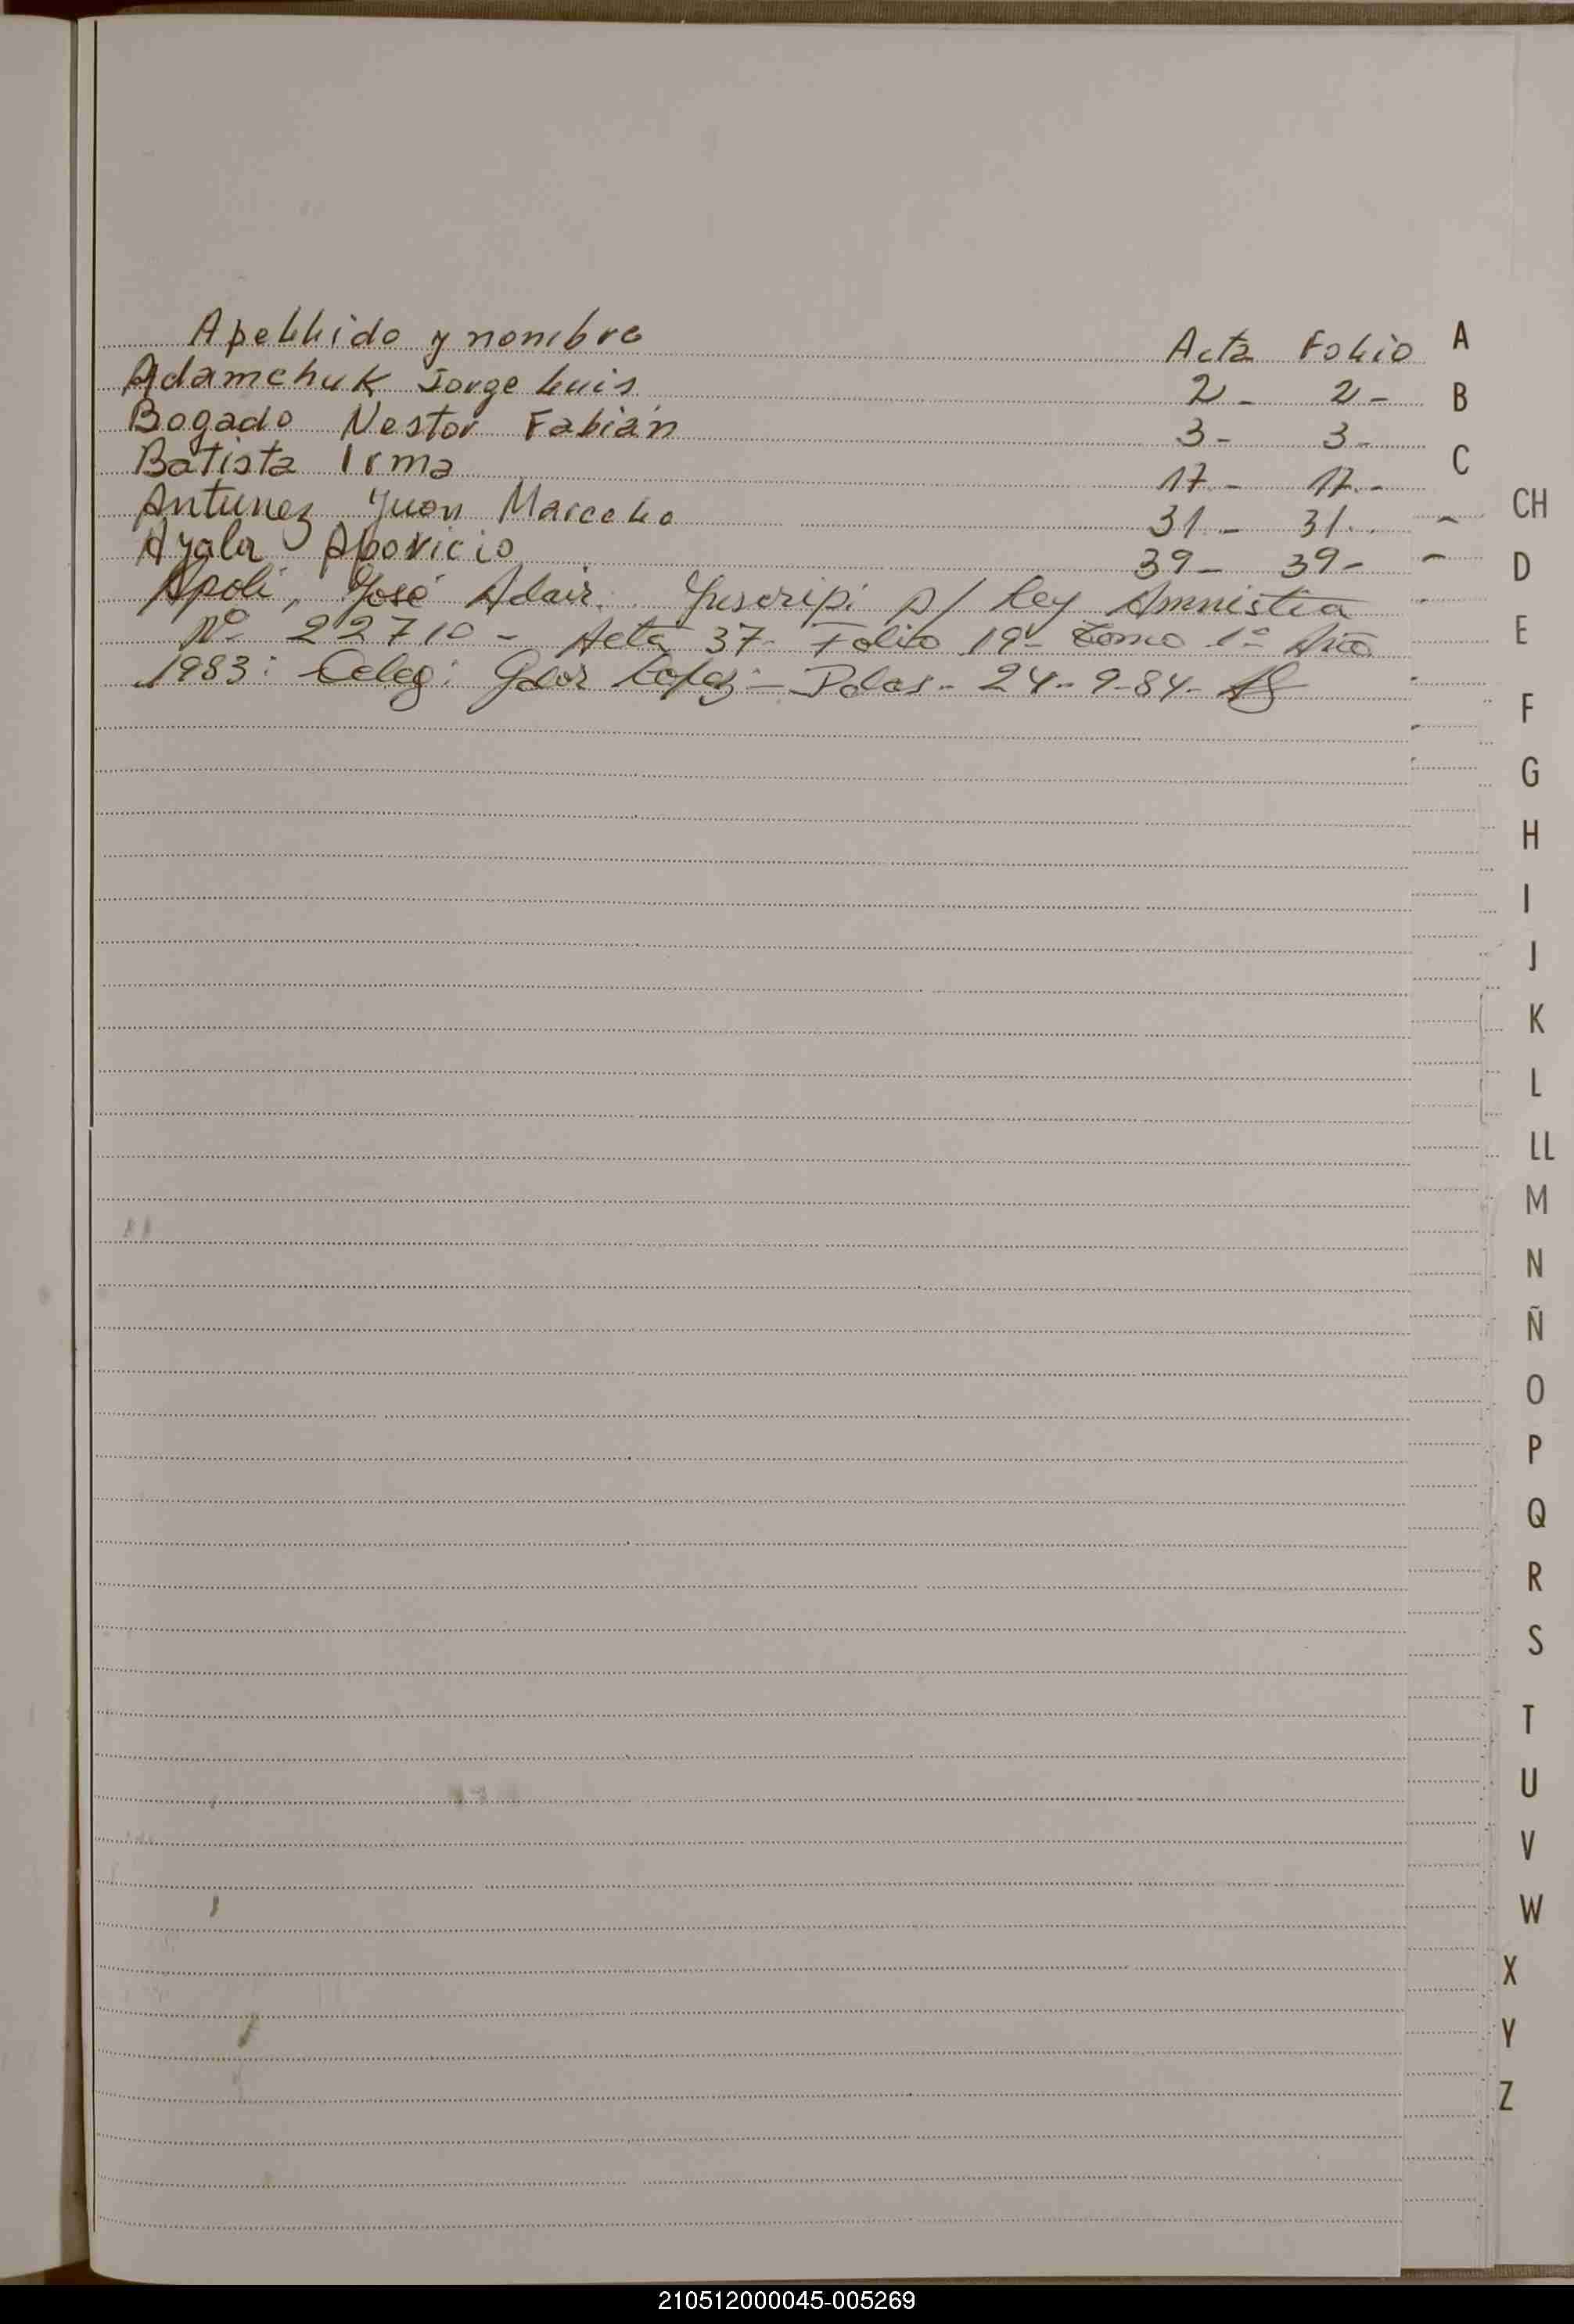 Apellido y nombre Acta Folio
Adamchuk Jorge Luis 2- 2-
Bogado Nestor Fabián 3- 3-
Batista Irma 17- 17-
Antunez Juan Marcelo 31- 31.
Ayala Aparicio 39- 39-
Apoli, José Adair. Inscrip: s/ Ley Amnistia
Nº 22710- Acta 37- Folio 19- Tomo 1º Año
1983: Deleg: Gdor Lopez- Pdas- 24-9-84-
A
B
C
CH
D
E
F
G
H
I
J
K
L
LL
M
N
Ñ
O
P
Q
R
S
T
U
V
W
X
Y
Z
210512000045-005269